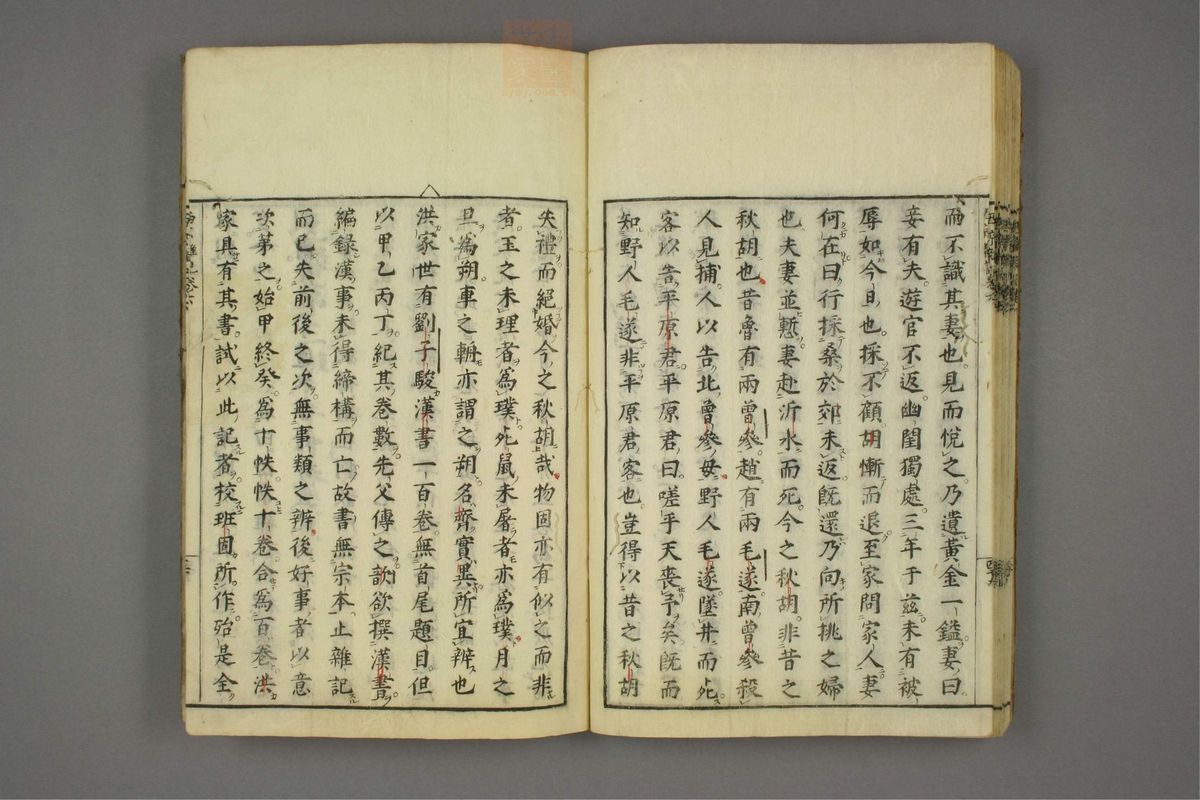 而不識其妻也見而悅之乃遺黃金一鎰妻曰
妾有夫遊宦不返幽閨獨處三年于茲未有被
辱如今日也採不顧胡慚而退至家問家人妻
何在曰行採桑於郊未返旣還乃向所挑之婦
也夫妻並慙妻赴沂水而死今之秋胡非昔之
秋胡也昔魯有兩曾參趙有兩毛遂南曾參殺
人見捕人以告北曾參母野人毛遂墜井而死
客以告平原君平原君曰嗟乎天喪予矣旣而
知野人毛遂非平原君客也豈得以昔之秋胡
失禮而絕婚今之秋胡哉物固亦有似之而非
者玉之未理者為璞死鼠未屠者亦為璞月之
旦為朔車之輈亦謂之朔名齊實異所宜辨也
洪家世有劉子駿漢書一百卷無首尾題目但
以甲乙丙丁紀其卷數先父傳之歆欲撰漢書
編錄漢事未得締構而亡故書無宗本止雜記
而已失前後之次無事類之辨後好事者以意
次第之始甲終癸為十帙帙十卷合為百卷洪
家具有其書試以此記者校班固所作殆是全